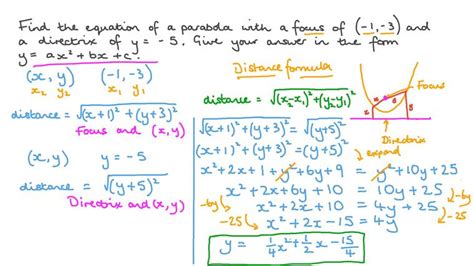 Find the equation of a parabola with a focus of (-1,-3) and
a directrix of y = -5. Give your answer in the form
y = ax² + bx + c.
(x, y) (-1, -3)
x₂ y₂ x₁ y₁
distance = √(x+1)² + (y+3)²
Focus and (x, y)
(x, y) y = -5
distance = √(y+5)²
Directrix and (x, y)
Distance formula
distance = √(x₂-x₁)² + (y₂-y₁)²
√(x+1)² + (y+3)² = √(y+5)²
(x+1)² + (y+3)² = (y+5)²
expand
x² + 2x + 1 + y² + 6y + 9 = y² + 10y + 25
x² + 2x + 6y + 10 = 10y + 25
-6y x² + 2x + 10 = 4y + 25 -6y
-25 x² + 2x - 15 = 4y -25
y = 1/4 x² + 1/2 x - 15/4
Focus
Directrix